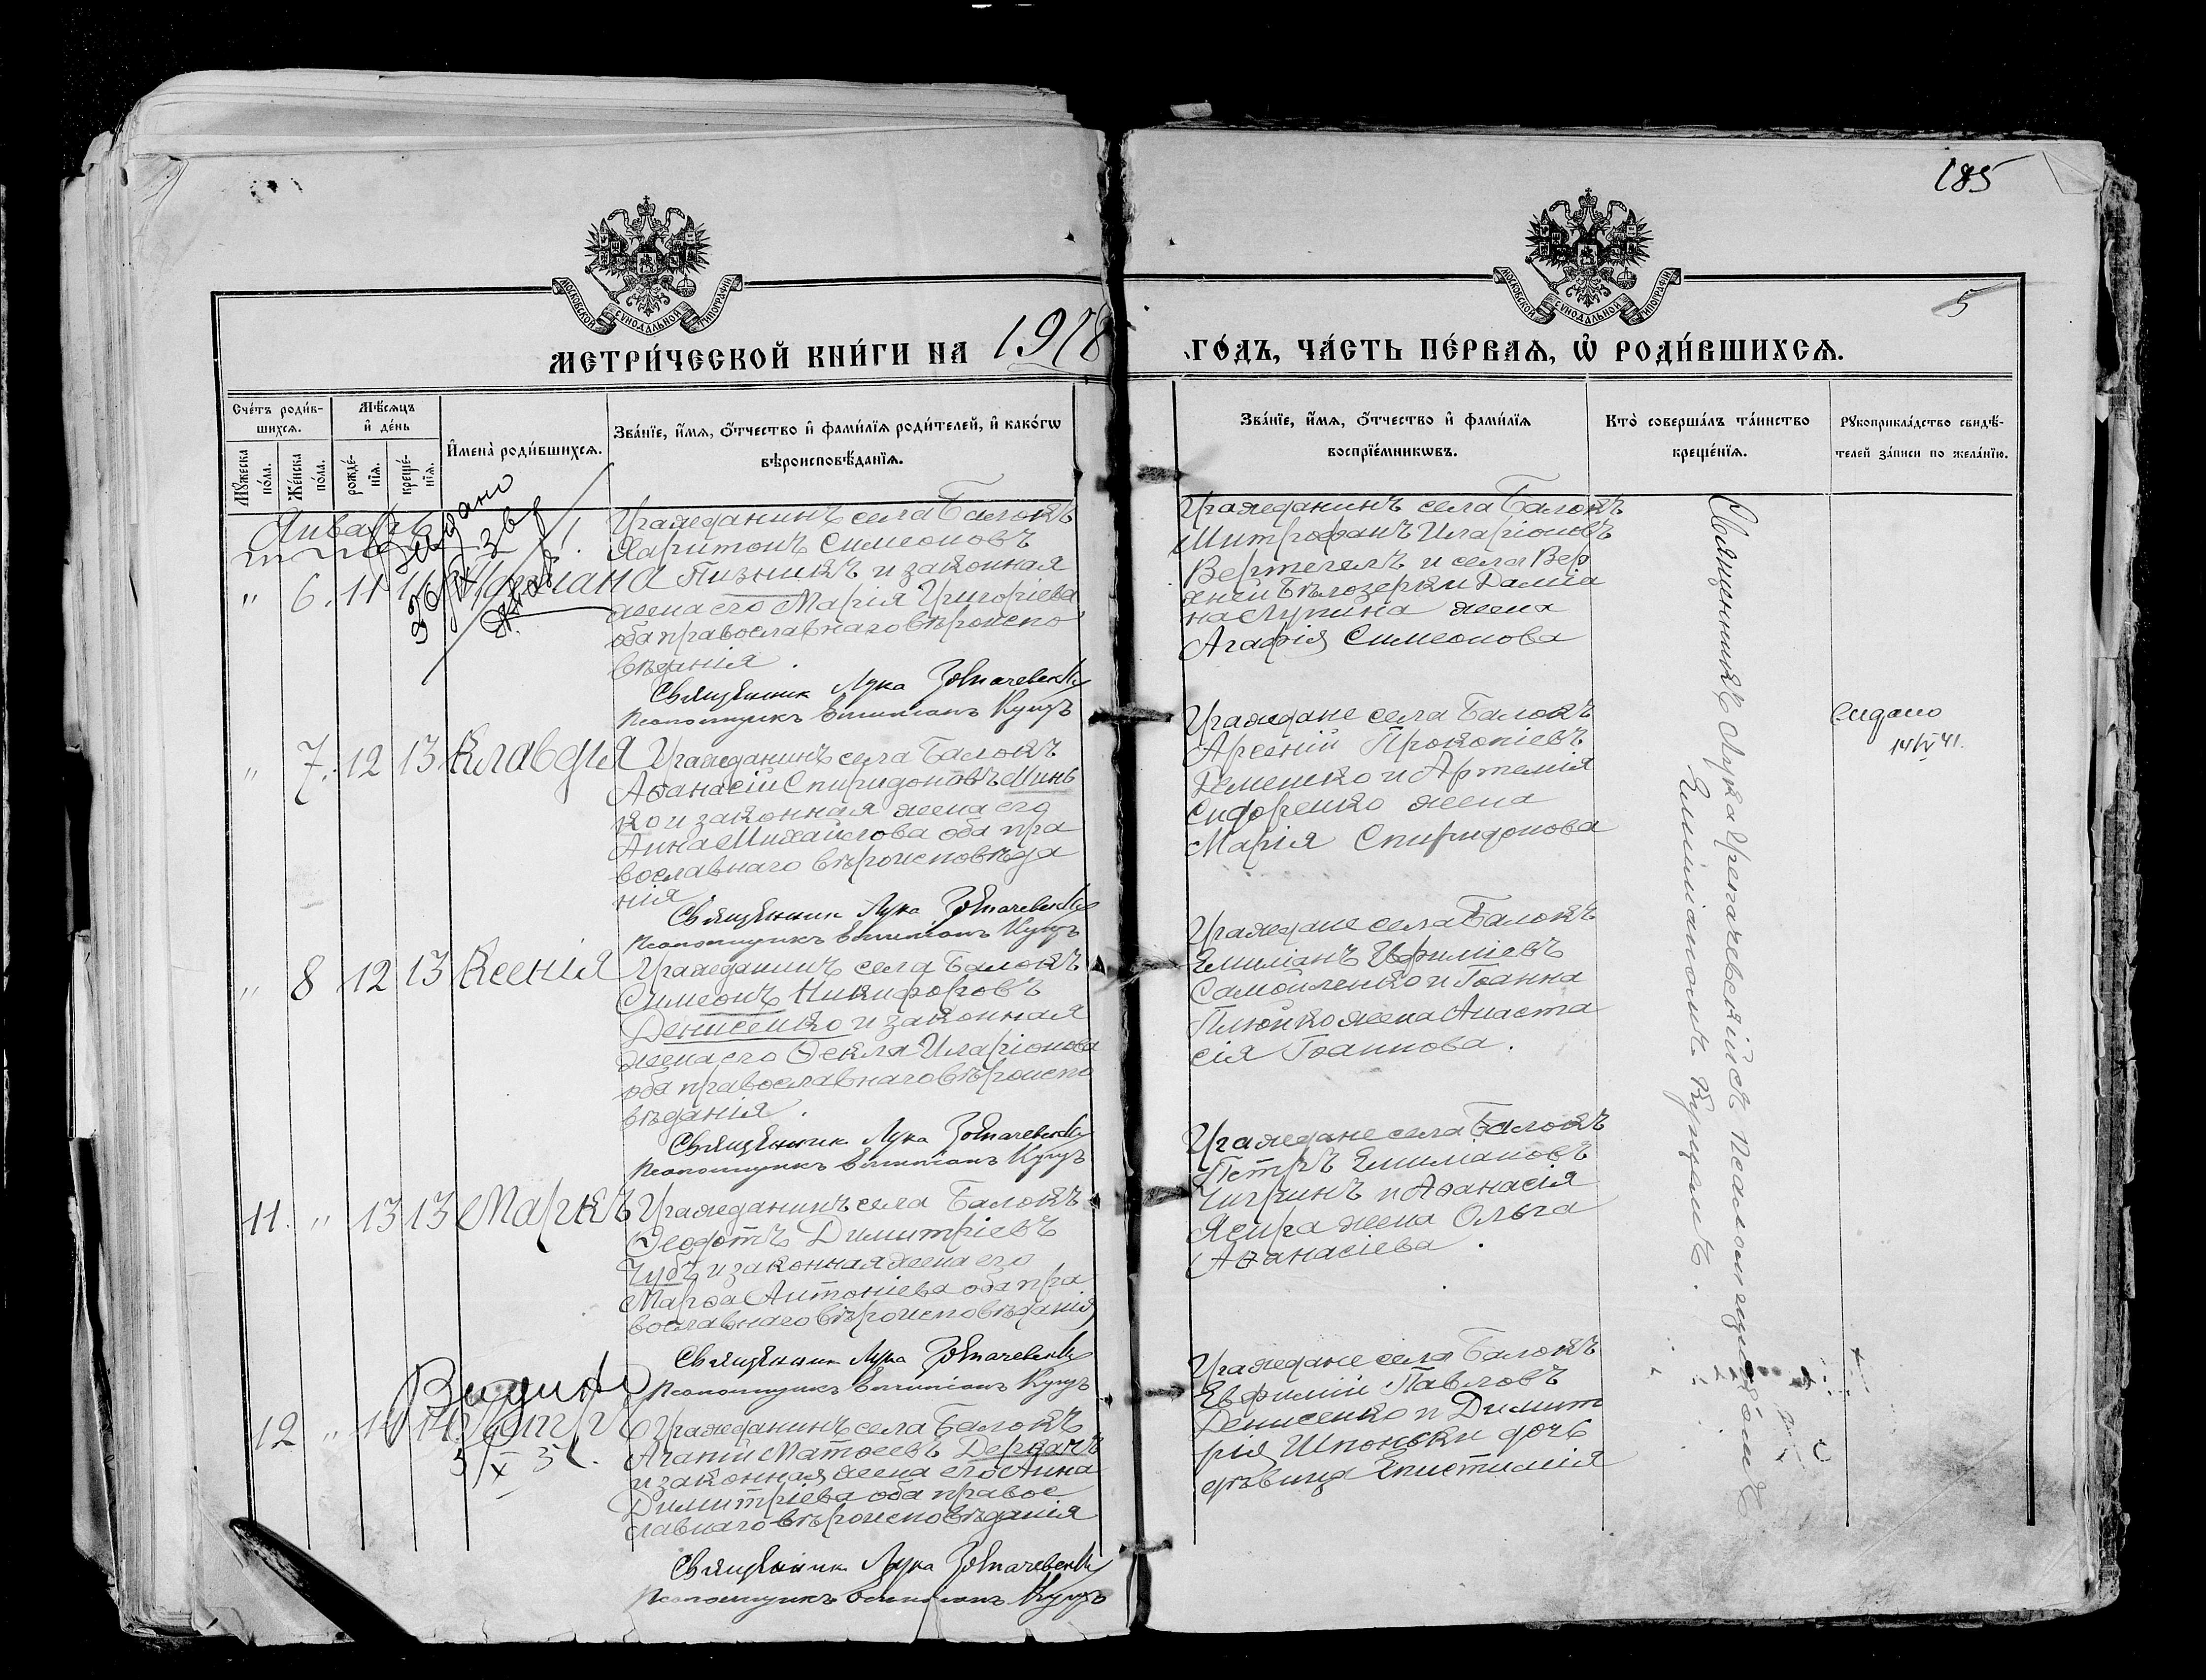 185
5
МОСКОВСКОЙ СѴНОДАЛЬНОЙ ТИПОГРАФІИ
МОСКОВСКОЙ СѴНОДАЛЬНОЙ ТИПОГРАФІИ
МЕТРИ́ЧЕСКОЙ КНИ́ГИ НА 1918
ГО́ДЪ, ЧА́СТЬ ПЕ́РВАѦ, Ѽ РОДИ́ВШИХСѦ.
Сче́тъ роди́в-
шихсѧ.
Мꙋжеска по́ла.
Же́нска по́ла.
Мѣ́сѧцъ
и҆ де́нь
рожде́-
нїѧ.
креще́-
нїѧ.
И҆мена̀ роди́вшихсѧ.
Зва́нїе, и҆́мѧ, ѻ҆́тчество и҆ фами́лїѧ роди́телей, и҆ како́гѡ
вѣроисповѣ́данїѧ.
Зва́нїе, и҆́мѧ, ѻ҆́тчество и҆ фами́лїѧ
воспрїе́мникѡвъ.
Кто̀ соверша́лъ та́инство
креще́нїѧ.
Рꙋкоприкла́дство свидѣ́-
телей за́писи по жела́нїю.
Январь
" 6. 11
Гражданинъ села Балокъ
Харитонъ Симеоновъ
Пизникъ и законная
жена его Марія Григоріева
оба православнаго вѣроиспо
вѣданія.
Священник Лука
Псаломщикъ Емилианъ Купцъ
Гражданинъ села Балокъ
Митрофанъ Иларіоновъ
Вертегелъ и села Вер
хней Бѣлозерки Даміа
на Лупина жена
Агафія Симеонова
" 7. 12 13 Клавдія
Гражданинъ села Балокъ
Аѳанасій Спиридоновъ Минь
ко и законная жена его
Анна Михайлова оба пра
вославнаго вѣроисповѣда
нія
Священник Лука
Псаломщикъ Емилианъ Купцъ
Граждане села Балокъ
Арсеній Прокопіевъ
Демешко и Артемія
Сидоренко жена
Марія Спиридонова
Видано
14/V 41.
" 8 12 13 Ксенія
Гражданинъ села Балокъ
Симеонъ Никифоровъ
Денисенко и законная
жена его Ѳекла Иларіонова
оба православнаго вѣроиспо
вѣданія.
Священник Лука
Псаломщикъ Емилианъ Купцъ
Граждане села Балокъ
Емиліанъ Ефиміевъ
Самойленко и Іоанна
Плюйко жена Анаста
сія Іоаннова.
11. " 13 13 Маркъ
Гражданинъ села Балокъ
Ѳеодотъ Димитріевъ
Чубъ и законная жена его
Марѳа Антоніева оба пра
вославнаго вѣроисповѣданія
Священник Лука
Псаломщикъ Емилианъ Купцъ
Граждане села Балокъ
Петръ Емилиановъ
Чигринъ и Аѳанасія
Ясира жена Ольга
Аѳанасіева.
Видано
12 " 14 14 Петръ
Гражданинъ села Балокъ
Агапій Матѳеевъ Деркачъ
и законная жена его Анна
Димитріева оба правос
лавнаго вѣроисповѣданія
Священник Лука
Псаломщикъ Емилианъ Купцъ
Граждане села Балокъ
Евфимій Павловъ
Денисенко и Димит
рія Шпоньки дочь
дѣвица Епистимія
Священникъ Лука съ псаломщикомъ
Емиліаномъ Купцемъ.